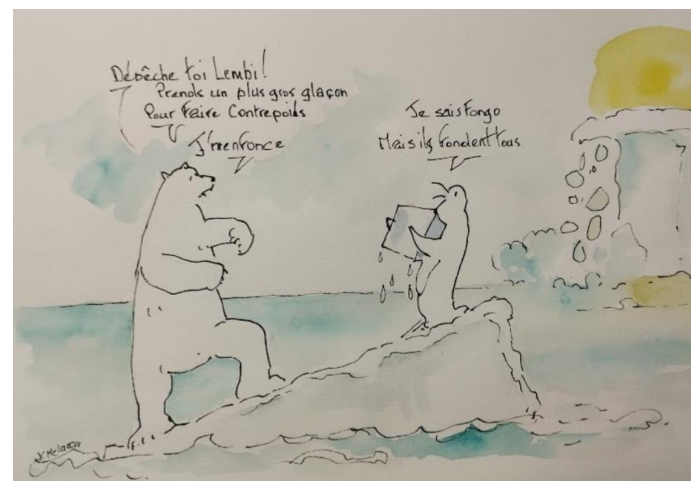 Dépêche toi Lembi!
Prends un plus gros glaçon
Pour Faire Contrepoids
J'm'enfonce
Je sais Fongo
Mais ils fondent tous